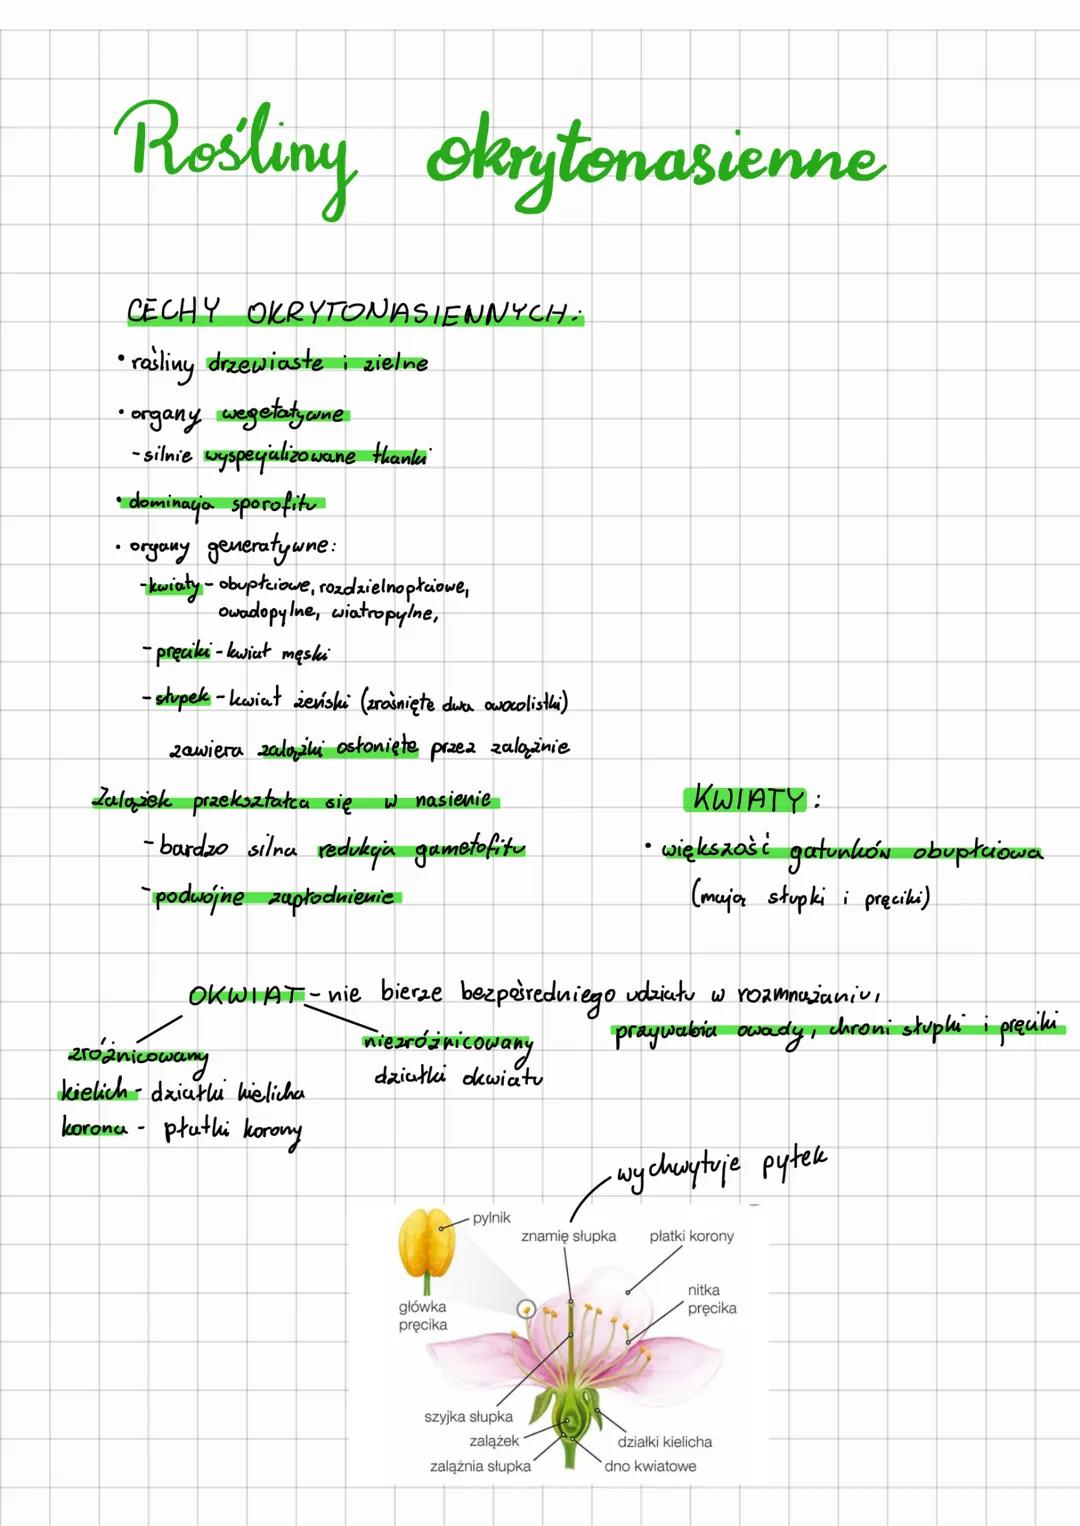 Rośliny okrytonasienne
CECHY OKRYTONASIENNYCH:
• rośliny drzewiaste i zielne
• organy wegetatywne
- silnie wyspecjalizowane tkanki
• dominacja sporofitu
• organy generatywne:
- kwiaty - obupłciowe, rozdzielnopłciowe,
owadopylne, wiatropylne,
- pręciki - kwiat męski
- słupek - kwiat żeński (zrośnięte dwa owocolistki)
zawiera zalążki osłonięte przez zalążnie
Zalążek przekształca się w nasienie
- bardzo silna redukcja gametofitu
- podwójne zapłodnienie
KWIATY:
• większość gatunków obupłciowa
(mają słupki i pręciki)
OKWIAT - nie bierze bezpośredniego udziału w rozmnażaniu,
przywabia owady, chroni słupki i pręciki
zróżnicowany
kielich - działki kielicha
korona - płatki korony
niezróżnicowany
działki okwiatu
wychwytuje pyłek
pylnik
znamię słupka
płatki korony
główka
pręcika
nitka
pręcika
szyjka słupka
zalążek
zalążnia słupka
działki kielicha
dno kwiatowe